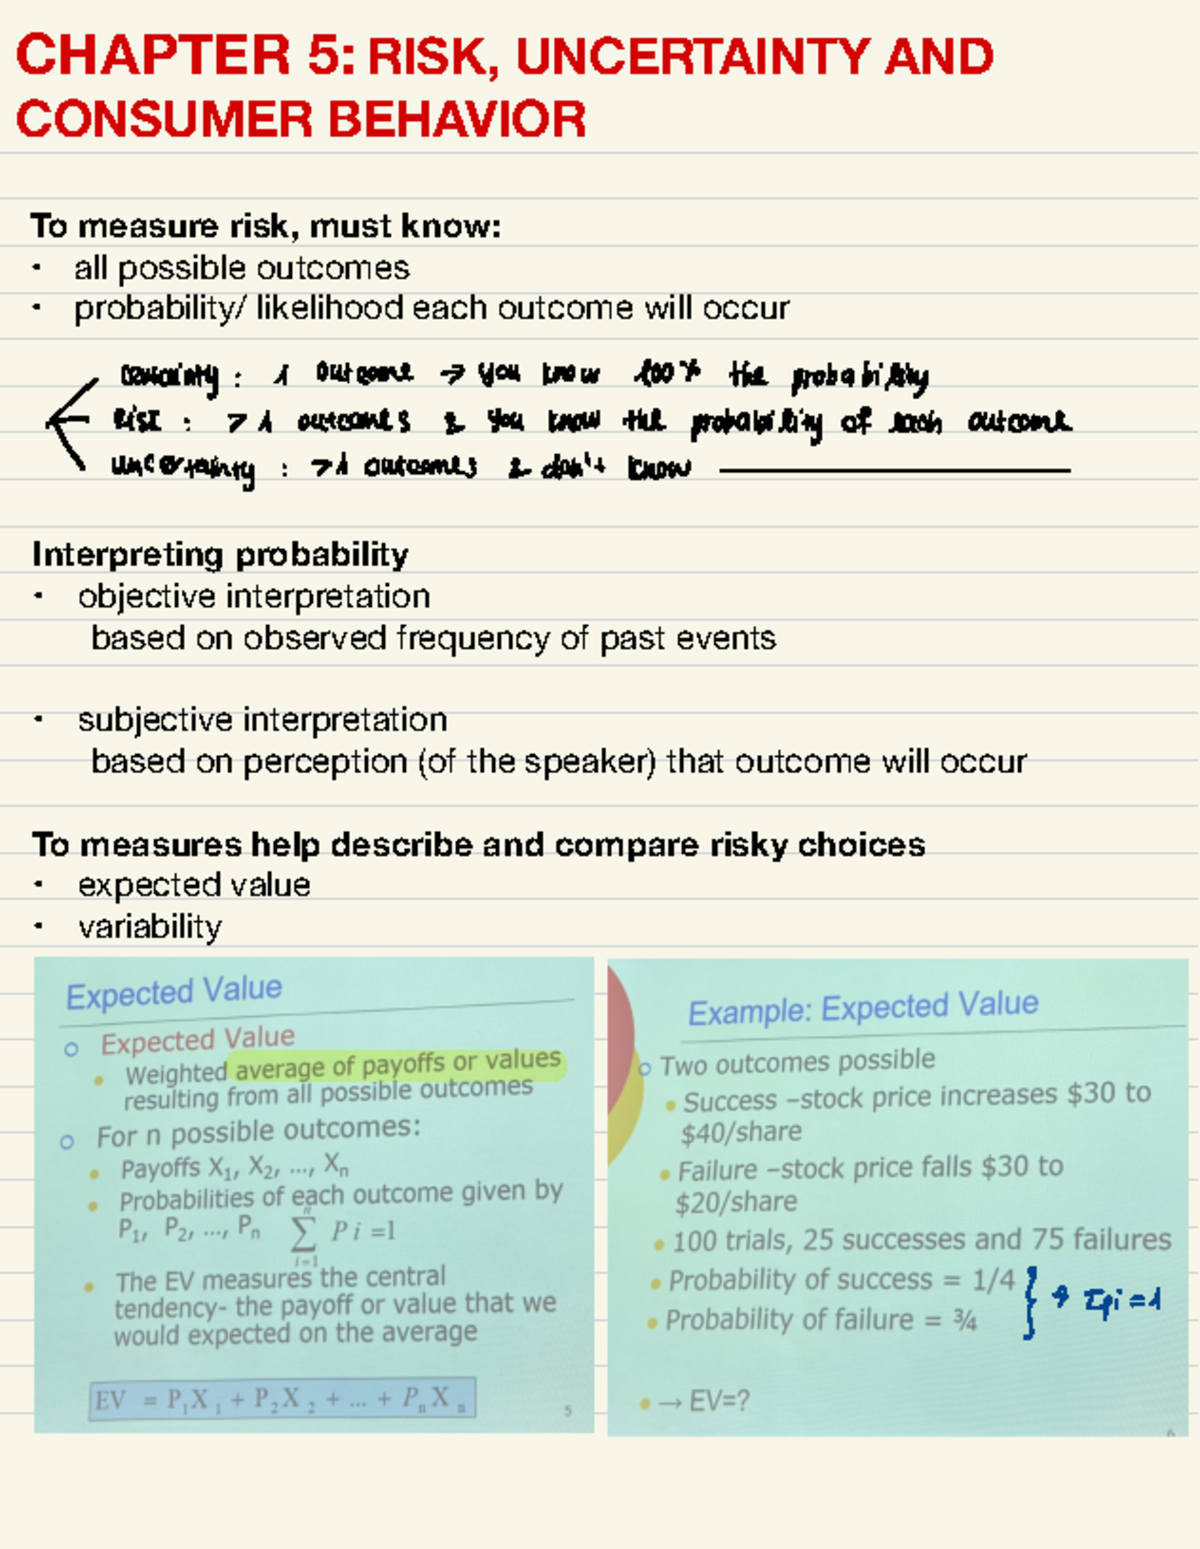 CHAPTER 5: RISK, UNCERTAINTY AND
CONSUMER BEHAVIOR
To measure risk, must know:
• all possible outcomes
• probability/ likelihood each outcome will occur
certainty : 1 outcome → you know 100% the probability
Risk : >1 outcomes & you know the probability of each outcome
uncertainty : >1 outcomes & don't know
Interpreting probability
• objective interpretation
based on observed frequency of past events
• subjective interpretation
based on perception (of the speaker) that outcome will occur
To measures help describe and compare risky choices
• expected value
• variability
Expected Value
Expected Value
• Weighted average of payoffs or values
resulting from all possible outcomes
For n possible outcomes:
• Payoffs X₁, X₂, ..., Xₙ
• Probabilities of each outcome given by
P₁, P₂, ..., Pₙ n∑i=1 Pi =1
• The EV measures the central
tendency- the payoff or value that we
would expected on the average
EV = P₁X₁ + P₂X₂ + ... + PₙXₙ
5
Example: Expected Value
Two outcomes possible
• Success –stock price increases $30 to
$40/share
• Failure –stock price falls $30 to
$20/share
• 100 trials, 25 successes and 75 failures
• Probability of success = 1/4
• Probability of failure = ¾
} → Σpi = 1
• → EV=?
6